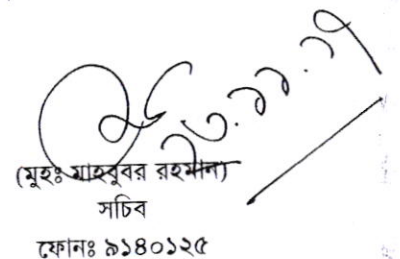 (মুহঃ মাহবুবর রহমান)
সচিব
ফোনঃ ৯১৪০১২৫